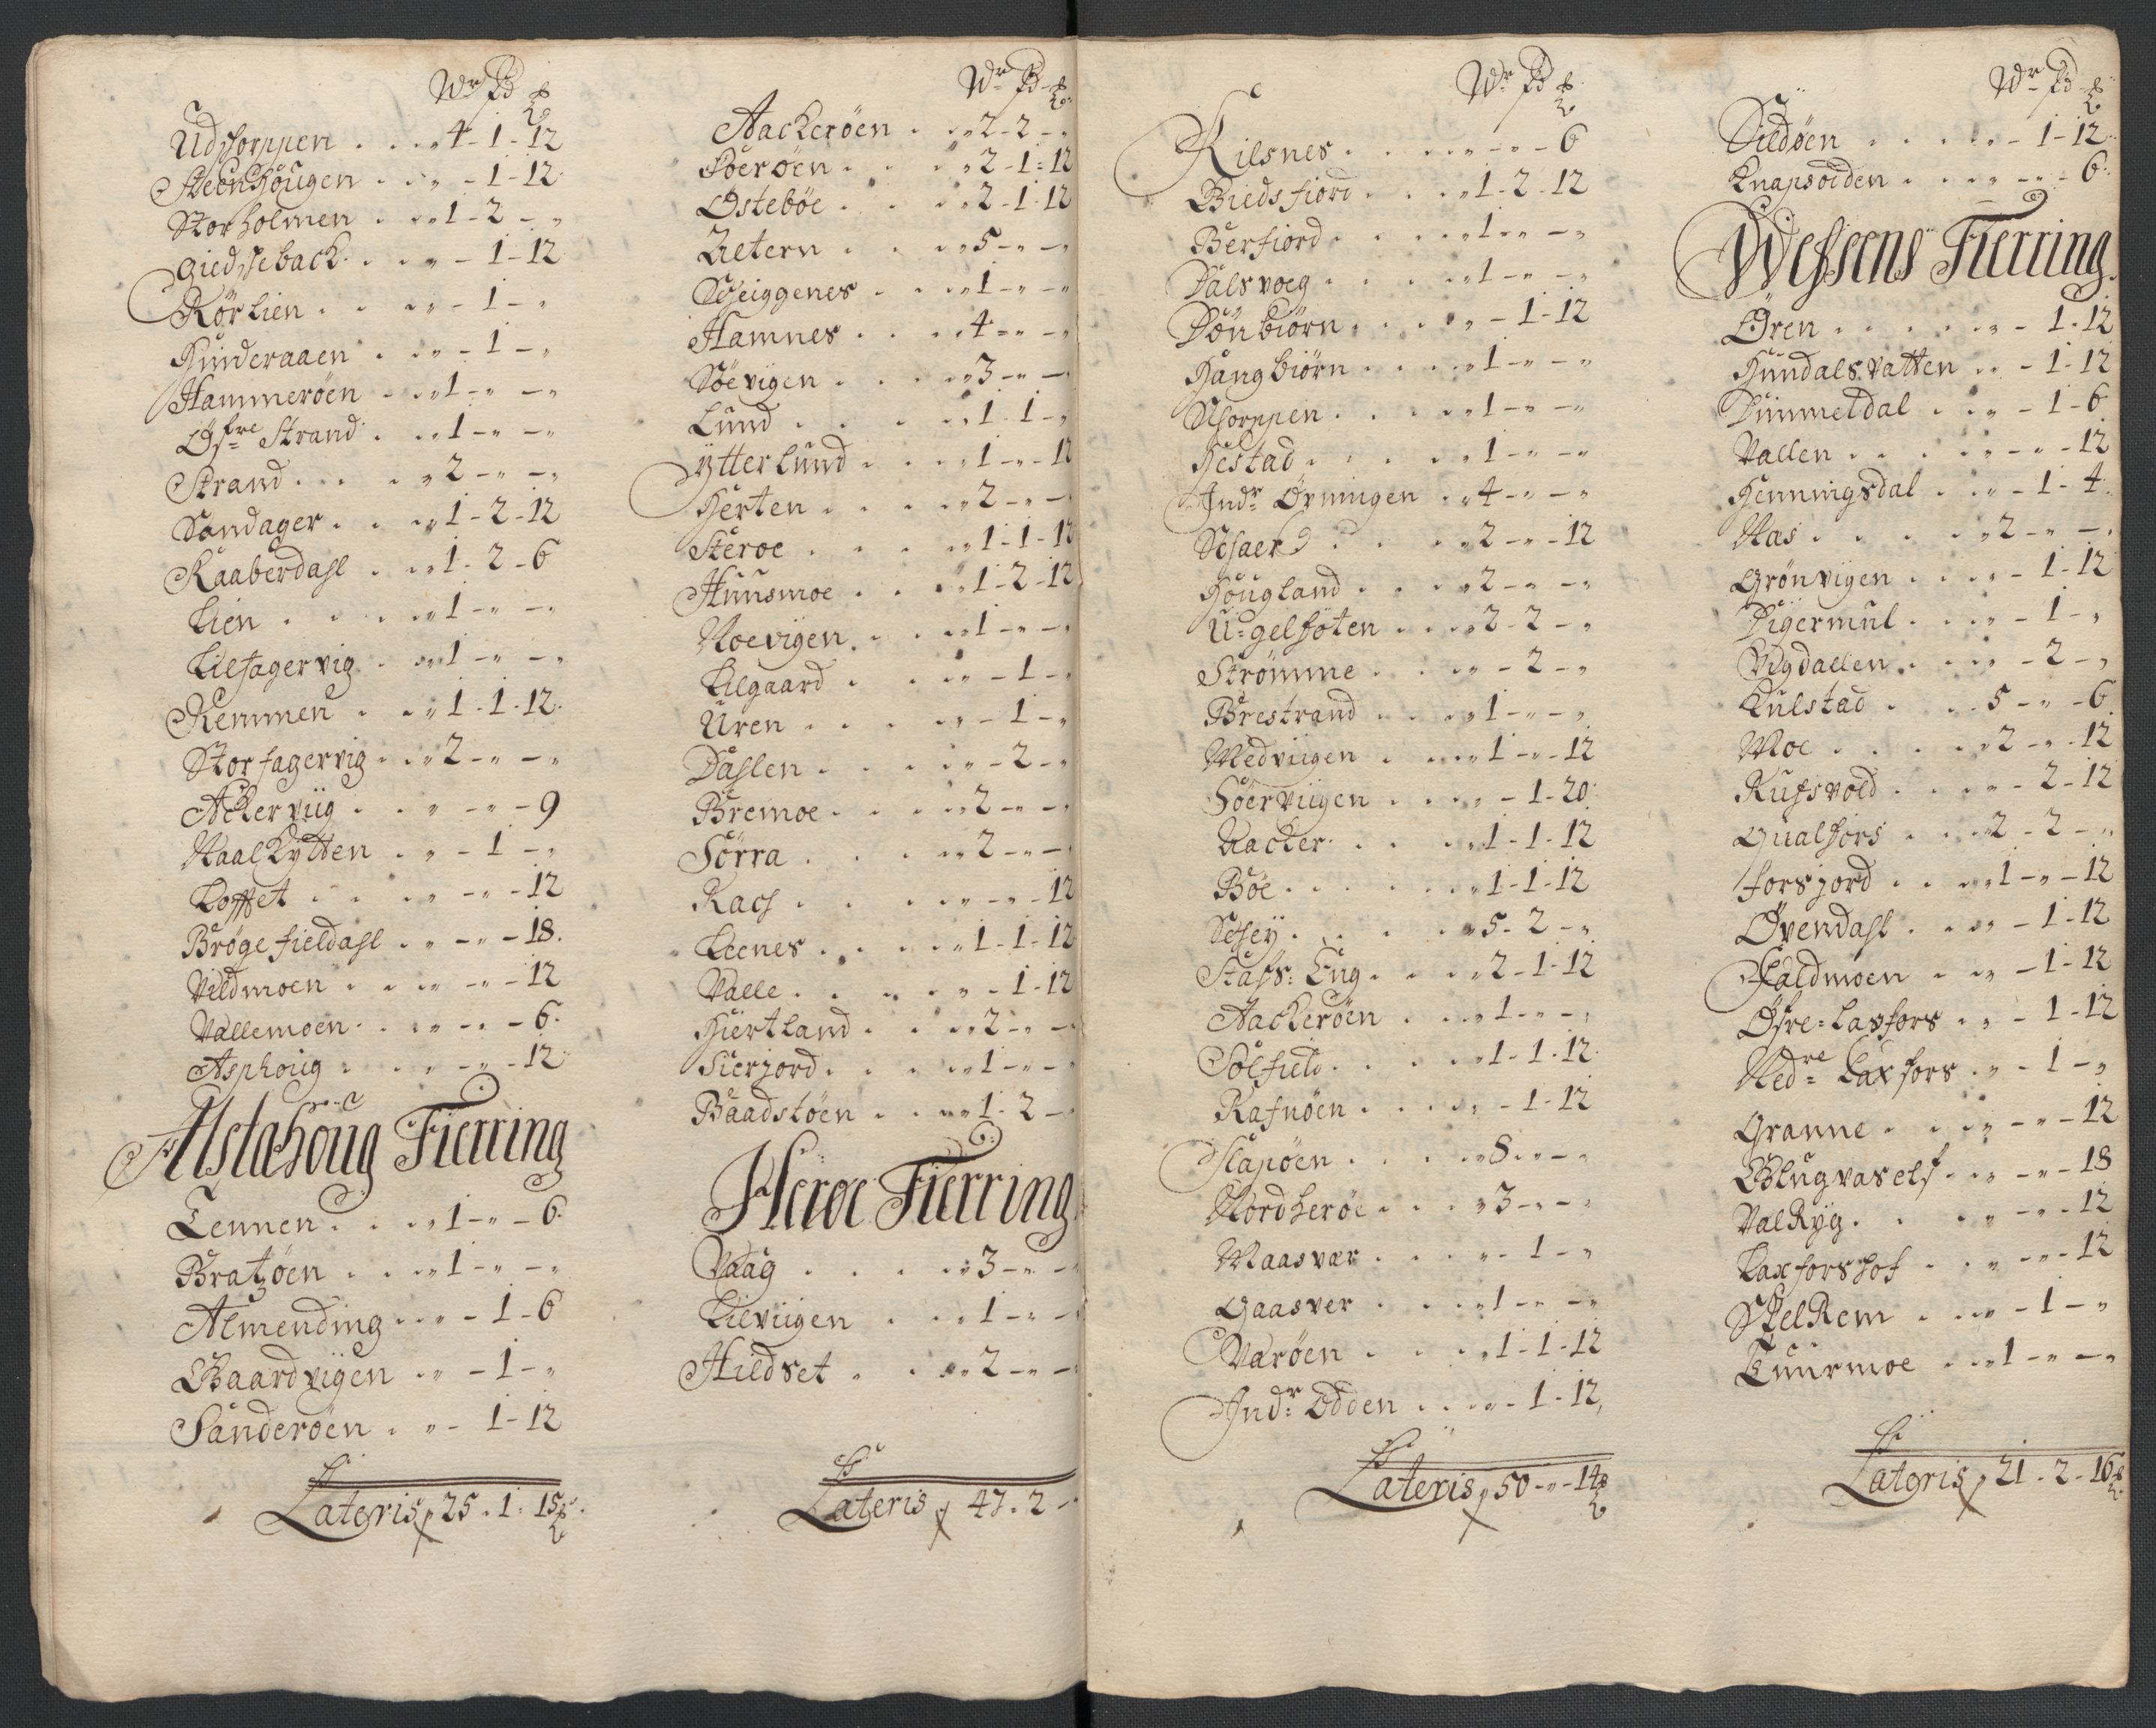 Wr Pd
Udschorppen . . . „ 4 - 1 - 12
Steenhougen . . „ - 1 - 12
Storholmen . . „ 1 - 2 - „
Giedseback . . „ - 1 - 12
Rörlien . . . „ - 1 - „
Hinderaaen . . „ - 1 - „
Hammeröen . . „ 1 - „ - „
Øfre Strand . . „ 1 - „ - „
Strand . . . „ 2 - „ - „
Sandager . . „ 1 - 2 - 12
Kaaberdahl . . „ 1 - 2 - 6
Lien . . . . „ 1 - „ - „
Lilfagervig . . „ 1 - „ - „
Remmen . . „ 1 - 1 - 12
Storfagervig . . „ 2 - „ - „
Ackerviig . . . „ - „ - 9
Naalkytten . . „ - 1 - „
Loffet . . . „ - „ - 12
Brøgefieldahl . . „ - „ - 18
Vildmoen . . . „ - „ - 12
Vallemoen . . . „ - „ - 6
Asphoug . . . „ - „ - 12
Alstahoug Fierring
Tennen . . . „ 1 - „ - 6
Bratzöen . . . „ 1 - „ - „
Almending . . „ - 1 - 6
Baardvigen . . „ - 1 - „
Sanderöen . . „ - 1 - 12
Lateris 25 - 1 - 15
Wr Pd
Aackeröen . . „ 2 - 2 - „
Söeröen . . . „ 2 - 1 - 12
Østebøe . . . „ 2 - 1 - 12
Zetern . . . „ 5 - „ - „
Scheiggenes . . „ 1 - „ - „
Hamnes . . . „ 4 - „ - „
Söevigen . . . „ 3 - „ -
Lund . . . . „ 1 - 1 - „
Ytterlund . . . „ 1 - „ - 12
Herten . . . . „ 2 - „ -
Steroe . . . „ 1 - 1 - 12
Huusmoe . . . „ 1 - 2 - 12
Noevigen . . . „ 1 - „ -
Lilgaard . . . „ - 1 - „
Uren . . . . „ - 1 - „
Dahlen . . . „ - 2 - „
Bremoe . . . . „ 2 - „ -
Sörra . . . . „ 2 - „ -
Rach . . . . „ - „ - 12
Leenes . . . . „ 1 - 1 - 12
Valle . . . . „ - 1 - 12
Hiertland . . . „ 2 - „ -
Sierjord . . . „ 1 - „ -
Baadstöen . . „ 1 - 2 -
Heroe Fierring
Vaag . . . . „ 3 - „ -
Lilviigen . . . „ 1 - „ -
Hildset . . . „ 2 - „ -
Lateris 47 - 2 -
Wr Pd
Kilsnes . . . „ - „ - 6
Biedsfiord . . . „ 1 - 2 - 12
Berfiord . . . „ 1 - „ - „
Dalsvoeg . . . „ 1 - „ - „
Dönbiörn . . . „ - 1 - 12
Hangbiörn . . . „ 1 - „ - „
Schorppen . . . „ 1 - „ - „
Hestad . . . . „ 1 - „ - „
Indr Övningen . „ 4 - „ - „
Schaer . . . „ 2 - „ - 12
Hougland . . . „ 2 - „ - „
U=gelföten . . . „ 2 - 2 - „
Strömme . . . „ - 2 - „
Brestrand . . . „ 1 - „ - „
Medviigen . . . „ 1 - „ - 12
Söerviigen . . . „ - 1 - 20
Aacker . . . . „ 1 - 1 - 12
Böe . . . . . „ 1 - 1 - 12
Schey . . . . „ 5 - 2 - „
Stahs: Eng . . . „ 2 - 1 - 12
Aackeröen . . . „ 1 - „ - „
Solfield . . . „ 1 - 1 - 12
Rafnöen . . . „ - 1 - 12
Slapöen . . . „ 8 - „ - „
Nordheröe . . . „ 3 - „ - „
Maasvær . . . „ - 1 - „
Gaasver . . . „ 1 - „ - „
Varöen . . . „ 1 - 1 - 12
Indr Odden . . . „ - 1 - 12
Lateris 50 - „ - 14
Wr Pd
Sildöen . . . . „ - 1 - 12
Knapsödden . . . „ - „ - 6
Wefsens Fierring
Ören . . . . „ - 1 - 12
Hundalsvatten . . „ - 1 - 12
Dimmeldal . . „ - 1 - 6
Vallen . . . . „ - „ - 12
Henningsdal . . „ - 1 - 4
Naes . . . . „ 2 - „ -
Grönvigen . . . „ - 1 - 12
Digermul . . . „ - 1 - „
Vigdallen . . . „ - 2 - „
Kulstad . . . 5 - „ - 6
Moe . . . . „ 2 - „ - 12
Rufsvold . . . „ - 2 - 12
Qualfors . . . 2 - 2 - „
Forsjord . . . „ 1 - „ - 12
Övendahl . . . „ - 1 - 12
Faldmoen . . „ - 1 - 12
Øfre=Laxfors . . „ - 1 - 12
Nedre Laxfors . . „ - 1 - „
Granne . . . „ - „ - 12
Blugvaself . . . „ - „ - 18
Valryg . . . „ - „ - 12
Laxforshof . . „ - „ - 12
Stelrem . . . „ - 1 - „
Tuurmoe . . . 1 - „ - „
Lateris 21 - 2 - 16